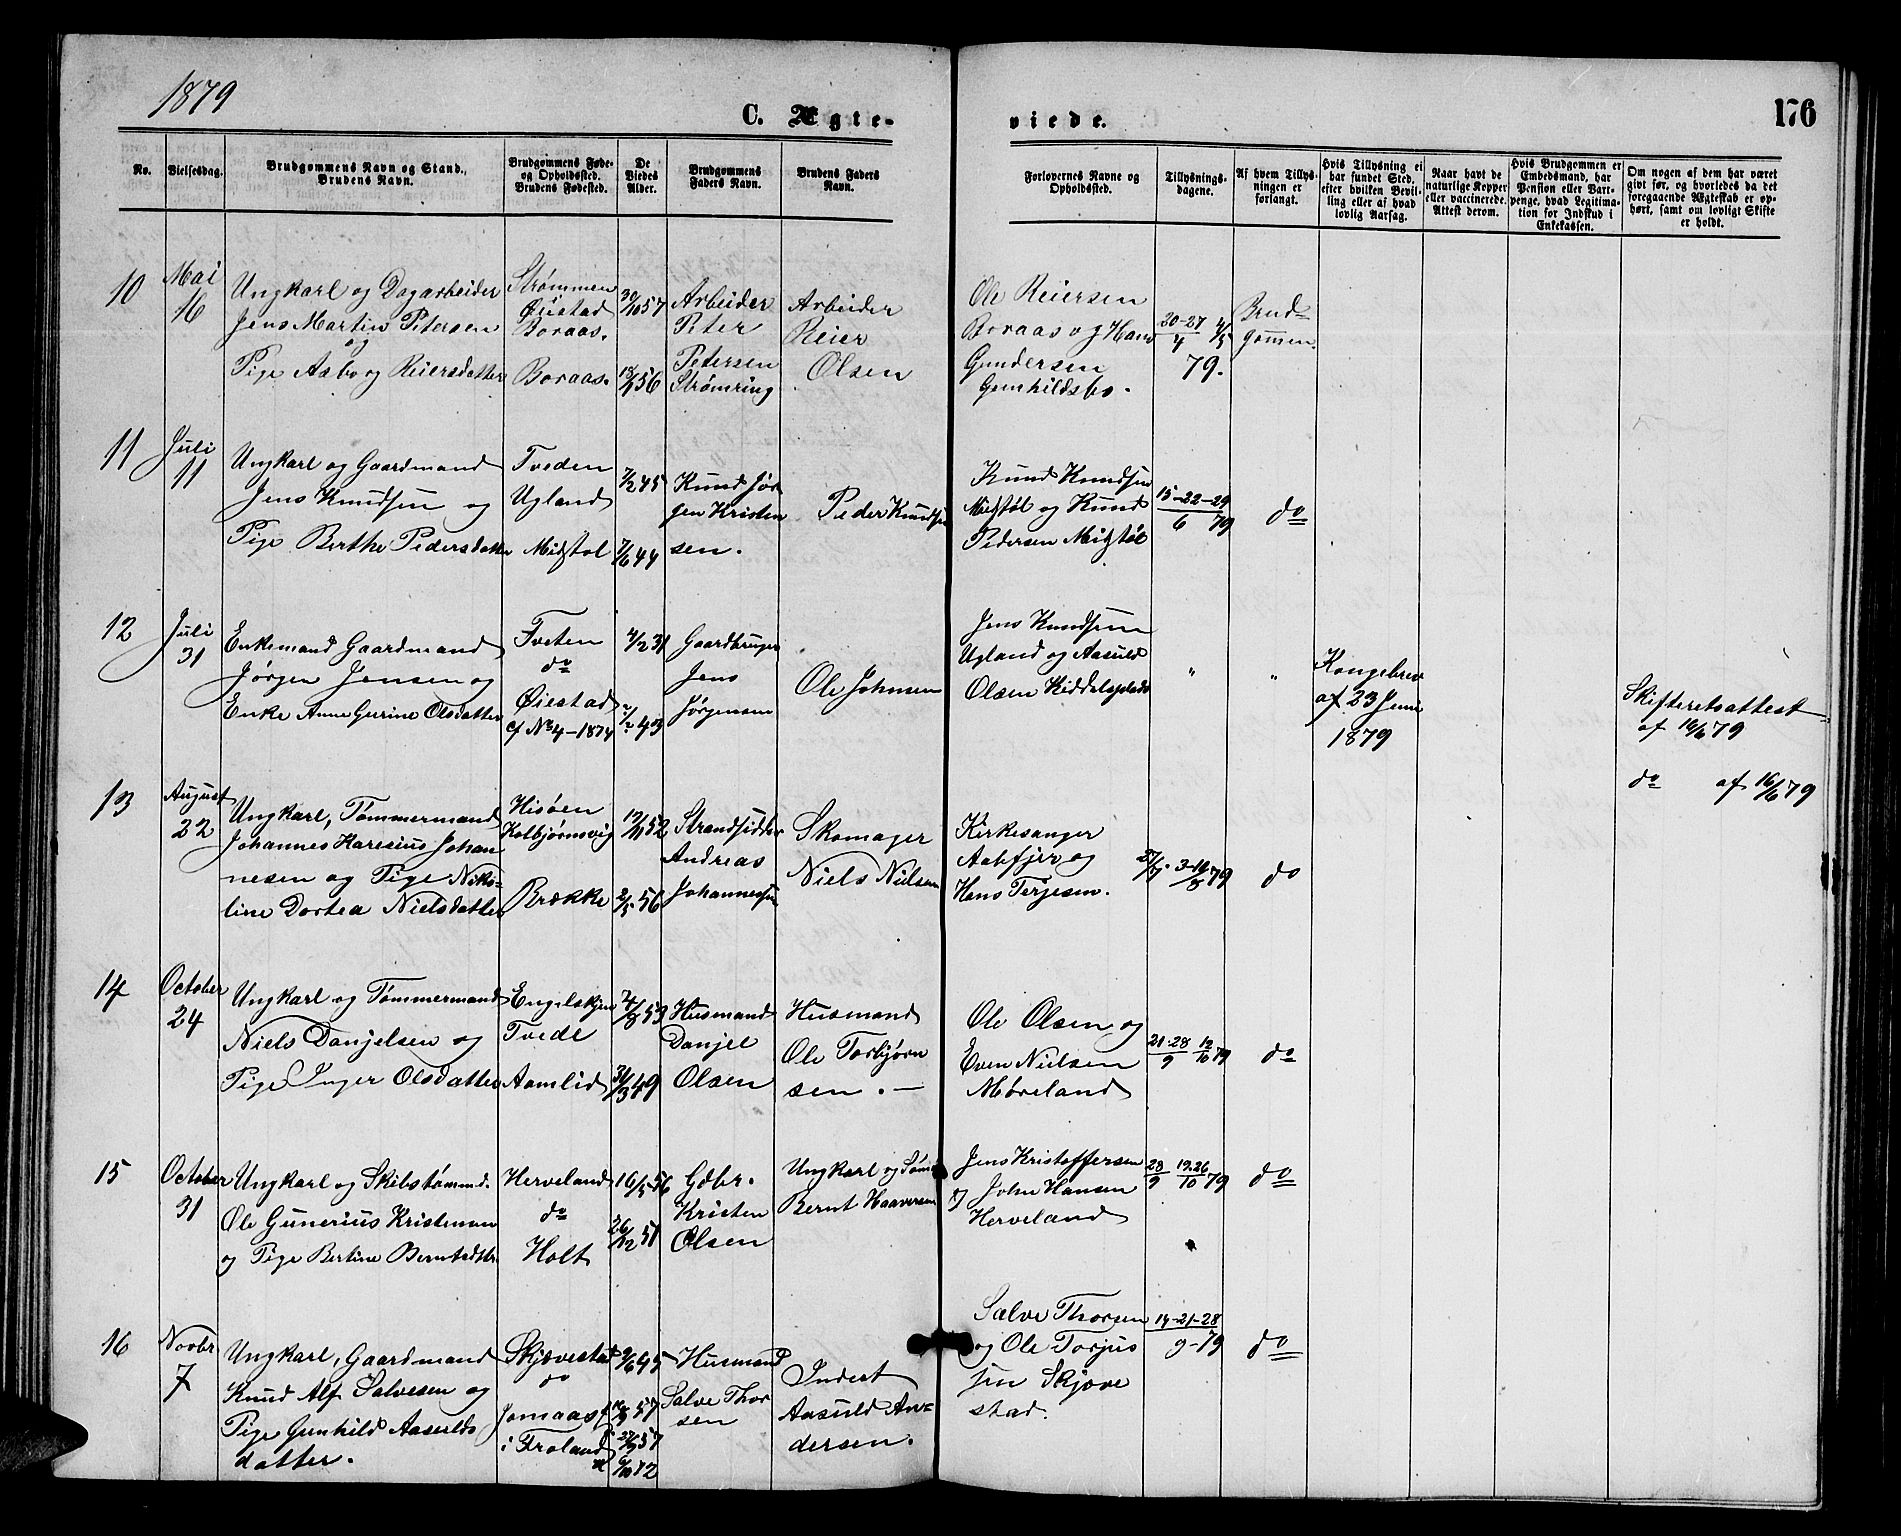 1879
C. Ægte-
viede.
176
No.
Vielsesdag.
Brudgommens Navn og Stand.,
Brudens Navn.
Brudgommens Føde-
og Opholdssted.
Brudens Fødested.
De
Viedes
Alder.
Brudgommens
Faders Navn.
Brudens Faders
Navn.
Forlovernes Navne og
Opholdssted.
Tillysnings-
dagene.
Af hvem Tillys-
ningen er
forlangt.
Hvis Tillysning ei
har fundet Sted,
efter hvilken Bevil-
ling eller af hvad
lovlig Aarsag.
Naar havt de
naturlige Kopper
eller vaccinerede.
Attest derom.
Hvis Brudgommen er
Embedsmand, har
Pension eller Vart-
penge, hvad Legitima-
tion for Indskud i
Enkekassen.
Om nogen af dem har været
givt før, og hvorledes da det
foregaaende Ægteskab er op-
hørt, samt om lovligt Skifte
er holdt.
10
Mai
16
Ungkarl og Dagarbeider
Jens Martin Petersen
og
Pige Aasborg Reiersdatter
Strømmen
Øiestad
Boraas.
Boraas.
30/10 57
18/1 56
Arbeider
Peter
Petersen
Strømring
Arbeider
Reier
Olsen
Ole Reiersen
Boraas og Hans
Gundersen
Gunhildsbo.
20-27/4 4/5
79.
Brud-
gommen.
11
Juli
11
Ungkarl og Gaardmand
Jens Knudsen og
Pige Berthe Pedersdatter
Tveden
Ugland
Midtøl
7/2 45
7/6 44
Knud Jør
gen Kristen
sen.
Peder Knudsen
Knud Knudsen
Midtøl og Knud
Pedersen Midtøl
15-22-29
6 79
do
12
Juli
31
Enkemand Gaardmand
Jørgen Jensen og
Enke Anne Gurine Olsdatter
Tveten
do
Øiestad
cf No 4-1874
4/2 31
43
Gaardbruger
Jens
Jørgensen
Ole Johnsen
Jens Knudsen
Ugland og Aasuld
Olsen Kiddelsplads
"
"
Kongebrev
af 23 Juni
1879
Skifteretsattest
af 16/6 79
do af 16/6 79
13
August
22
Ungkarl, Tømmermand
Johannes Karesius Johan
nesen og Pige Niko-
line Dortea Nielsdatter
Hisøen
Kolbjørnsvig
Brække
19/11 52
2/5 56
Strandsidder
Andreas
Johannesen
Skomager
Niels Nielsen
Kirkesanger
Aabfjer og
Hans Terjesen.
27/7. 3-10/8 79
do
14
October
24
Ungkarl og Tømmermand
Niels Danjelsen og
Pige Inger Olsdatter
Engelskjøn
Tvede
Aamlid
7/8 53
31/3 49
Husmand
Danjel
Olsen
Husmand
Ole Torbjørn
sen. —
Ole Olsen og
Even Nielsen
Møreland
21-28/9 12/10 79
do
15
October
31
Ungkarl og Skibstømmd.
Ole Gunerius Kristensen
og Pige Bertine Berntsdtr.
Herveland
do
Holt
16/5 56
26/12 51
Gdbr.
Kristen
Olsen
Ungkarl og Tøm
Bernt Haaversen
Jens Kristoffersen
og John Hansen
Herveland
28/9 12.26/10 79
do
16
Novbr
7
Ungkarl, Gaardmand
Knud Alf Salvesen og
Pige Gunhild Aasulds
datter.
Skjævestad
do
Jomaas
i Froland
9/6 45
57
27/9 57
6/10 72
Husmand
Salve Thor
sen
Inderst
Aasuld An-
dersen.
Salve Thorsen
og Ole Torjus
sen Skjæve
stad.
14-21-28
9-79
do